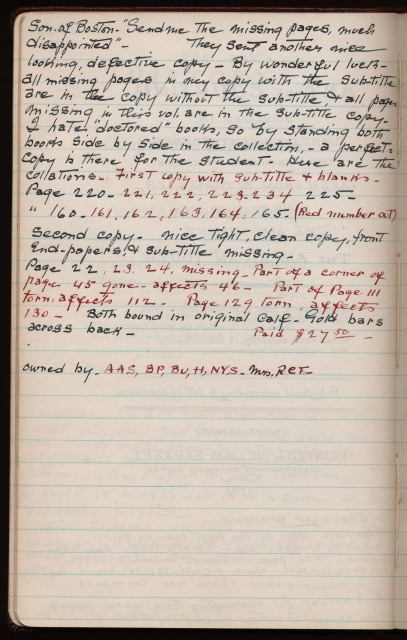 Son. of Boston - "Send me the missing pages, much
disappointed" - They sent another nice
looking, defective copy - By wonderful luck -
all missing pages in my copy with the sub-title
are in the copy without the sub-title, & all pages
missing in this vol. are in the sub-title copy.
I hate "doctored" books, so by standing both
books side by side in the collection, - a perfect -
copy is there for the student - Here are the
collations - First copy with sub-title & blanks -
Page 220 - 221, 222, 223 - 234 225 -
" 160 - 161, 162, 163, 164, 165. (Red number out)
Second copy - nice tight, clean copy, front
end-papers, & sub-title missing -
Page 22, 23, 24, missing - Part of a corner of
page 45 gone - affects 46 - Part of Page 111
torn, affects 112 - Page 129 torn, affects
130 - Both bound in original calf - Gold bars
across back - Paid $27 50 -
owned by - AAS, BP, BU, H, NYS - Mrs,